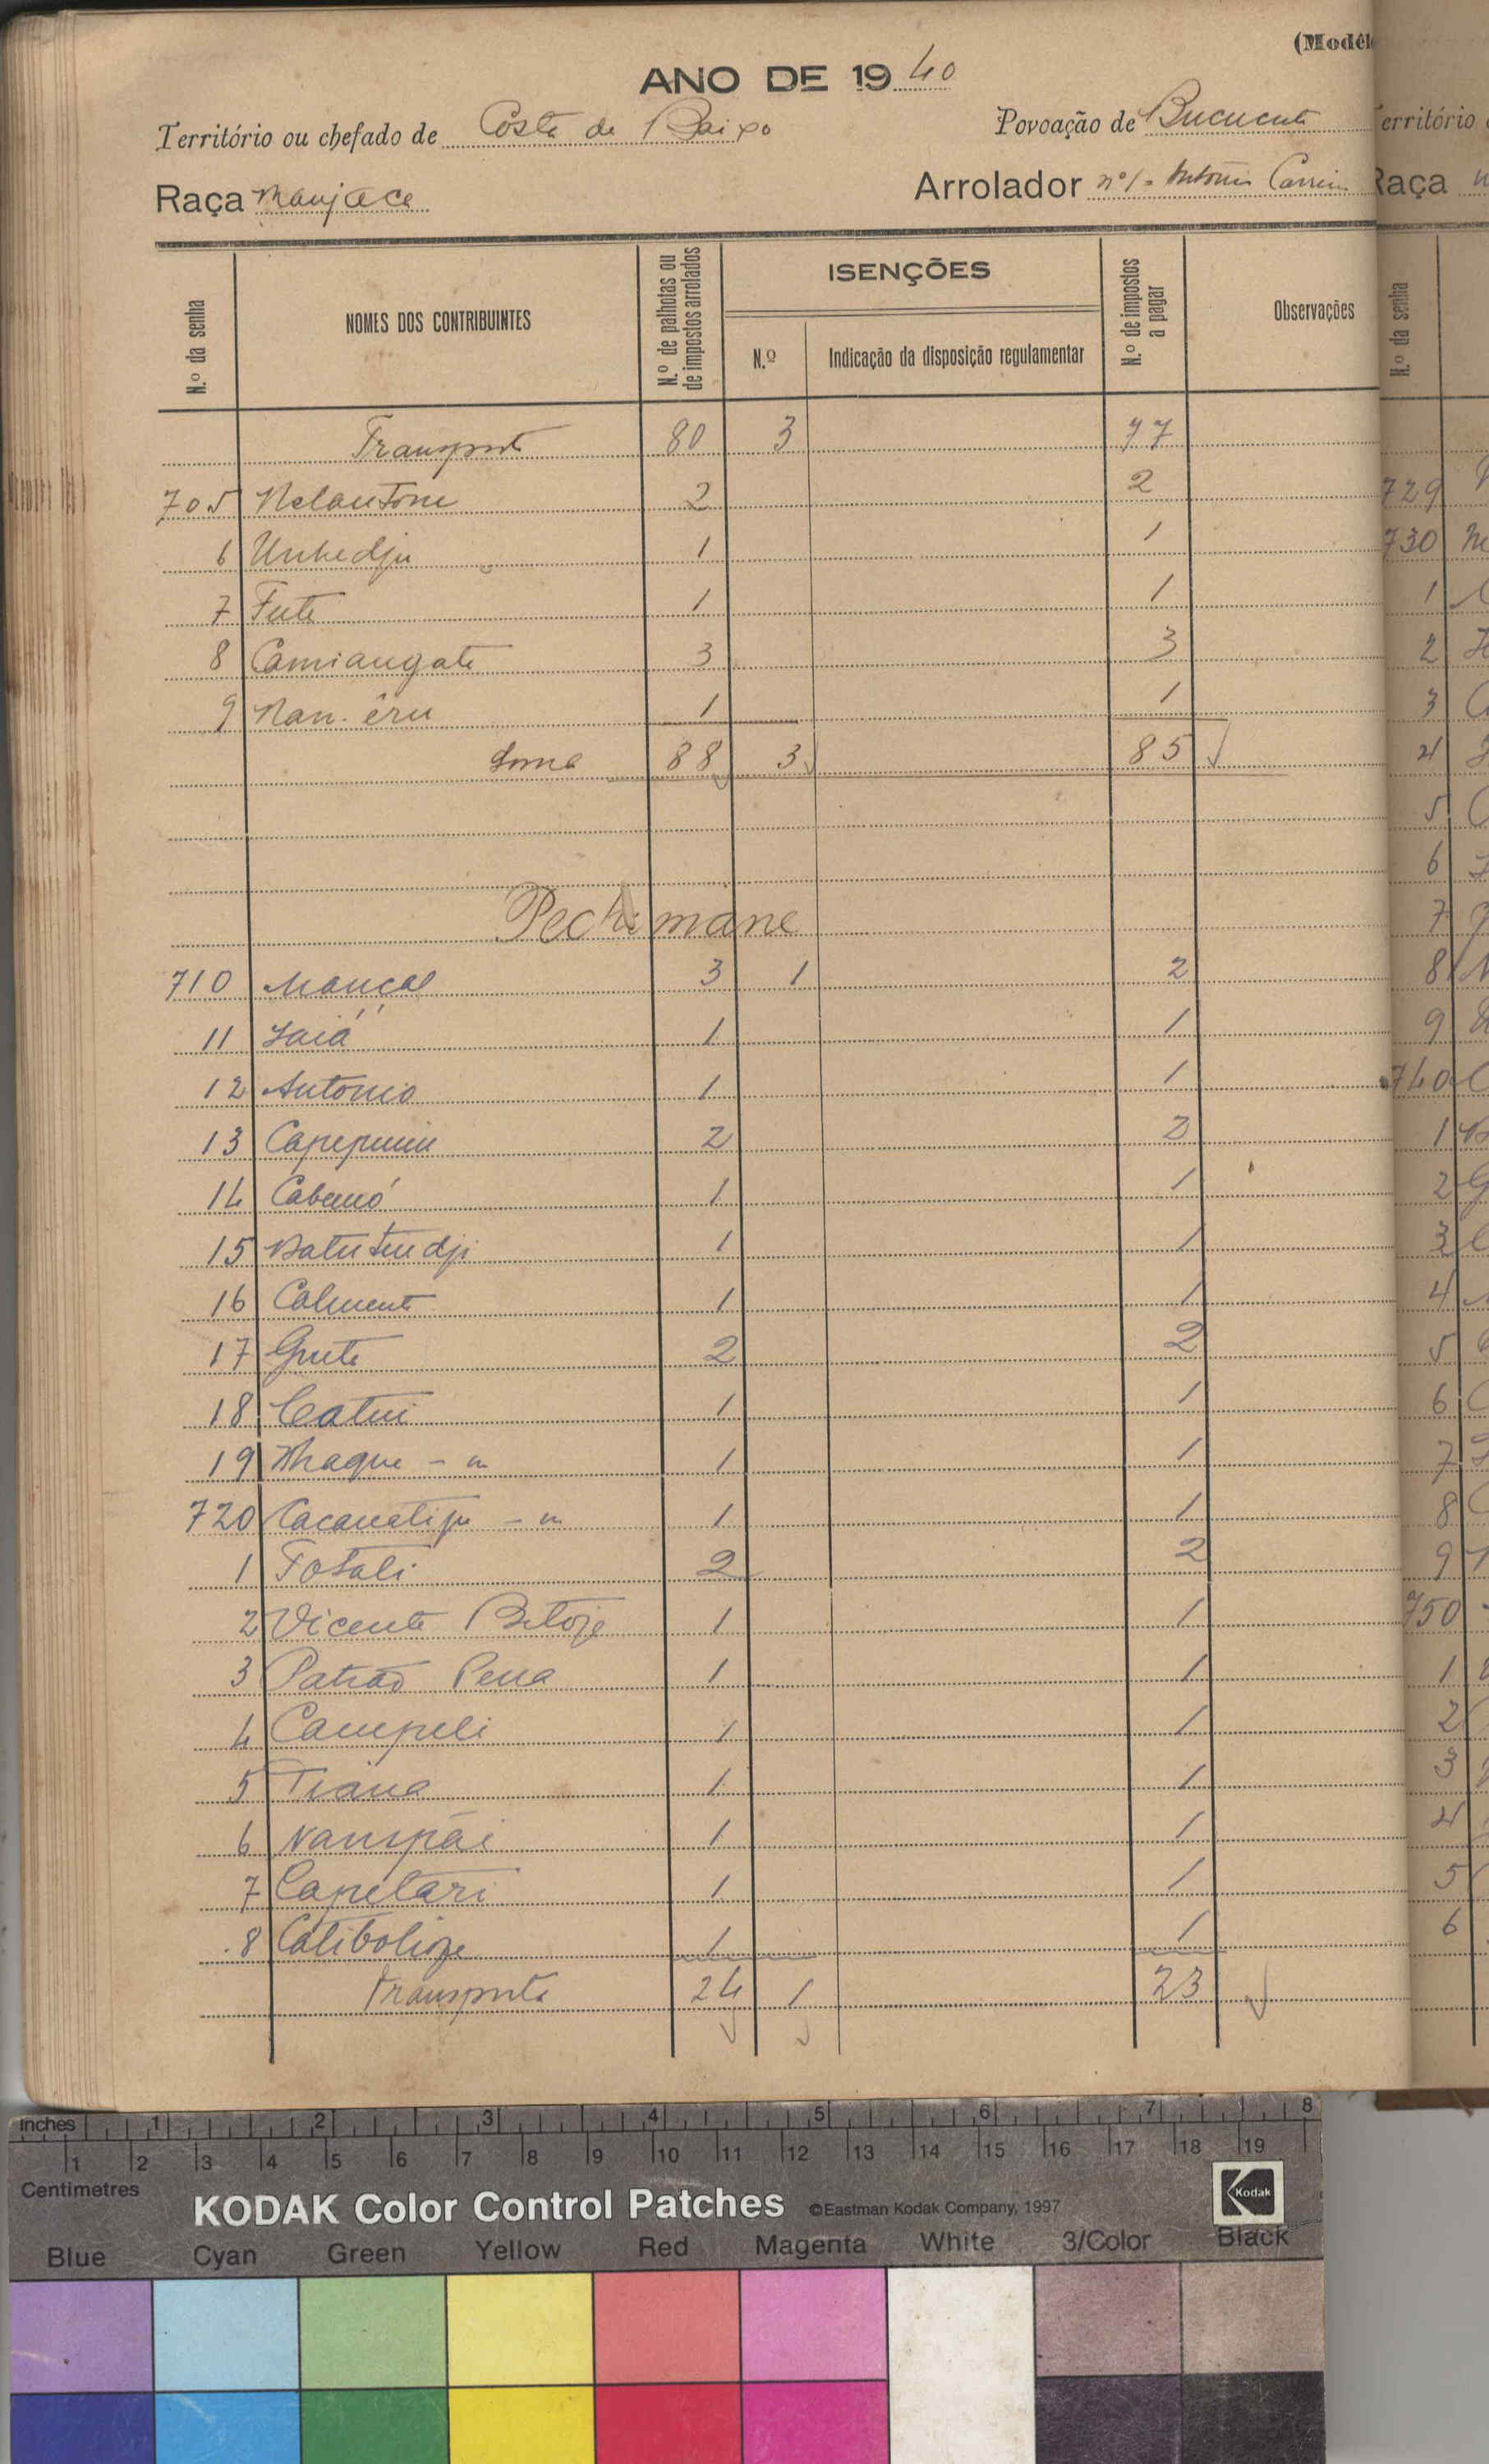 (Modêl
ANO DE 1940
Território ou chefado de Costa de Baixo Povoação de Bucucute
Raça Manjaca Arrolador nº 1 = António Carrei
N.º da senha NOMES DOS CONTRIBUINTES N.º de palhotas ou de impostos arrolados ISENÇÕES N.º Indicação da disposição regulamentar N.º de impostos a pagar Observações
Transporte 80 3 77
705 Nelantone 2 2
6 Unhedju 1 1
7 Fute 1 1
8 Camiangate 3 3
9 Nan-êru 1 1
Soma 88 3 85
Pechimane
710 Mançal 3 1 2
11 Jaiá 1 1
12 Antonio 1 1
13 2 2
14 Cabamó 1 1
15 1 1
16 1 1
17 2 2
18 Catui 1 1
19 Nhaque - m 1 1
720 - m 1 1
1 Fotali 2 2
2 Vicente Betoje 1 1
3 Patrão Pena 1 1
4 Campili 1 1
5 Tiana 1 1
6 Nampai 1 1
7 Capetari 1 1
8 1 1
Transporte 24 1 23
erritório
Raça
N.º da senha
729
730
1
2
3
4
5
6
7
8
9
740
1
2
3
4
5
6
7
8
9
750
1
2
3
4
5
6
inches 1 2 3 4 5 6 7 8
1 2 3 4 5 6 7 8 9 10 11 12 13 14 15 16 17 18 19
Centimetres
KODAK Color Control Patches ©Eastman Kodak Company, 1997 Kodak
Blue Cyan Green Yellow Red Magenta White 3/Color Black